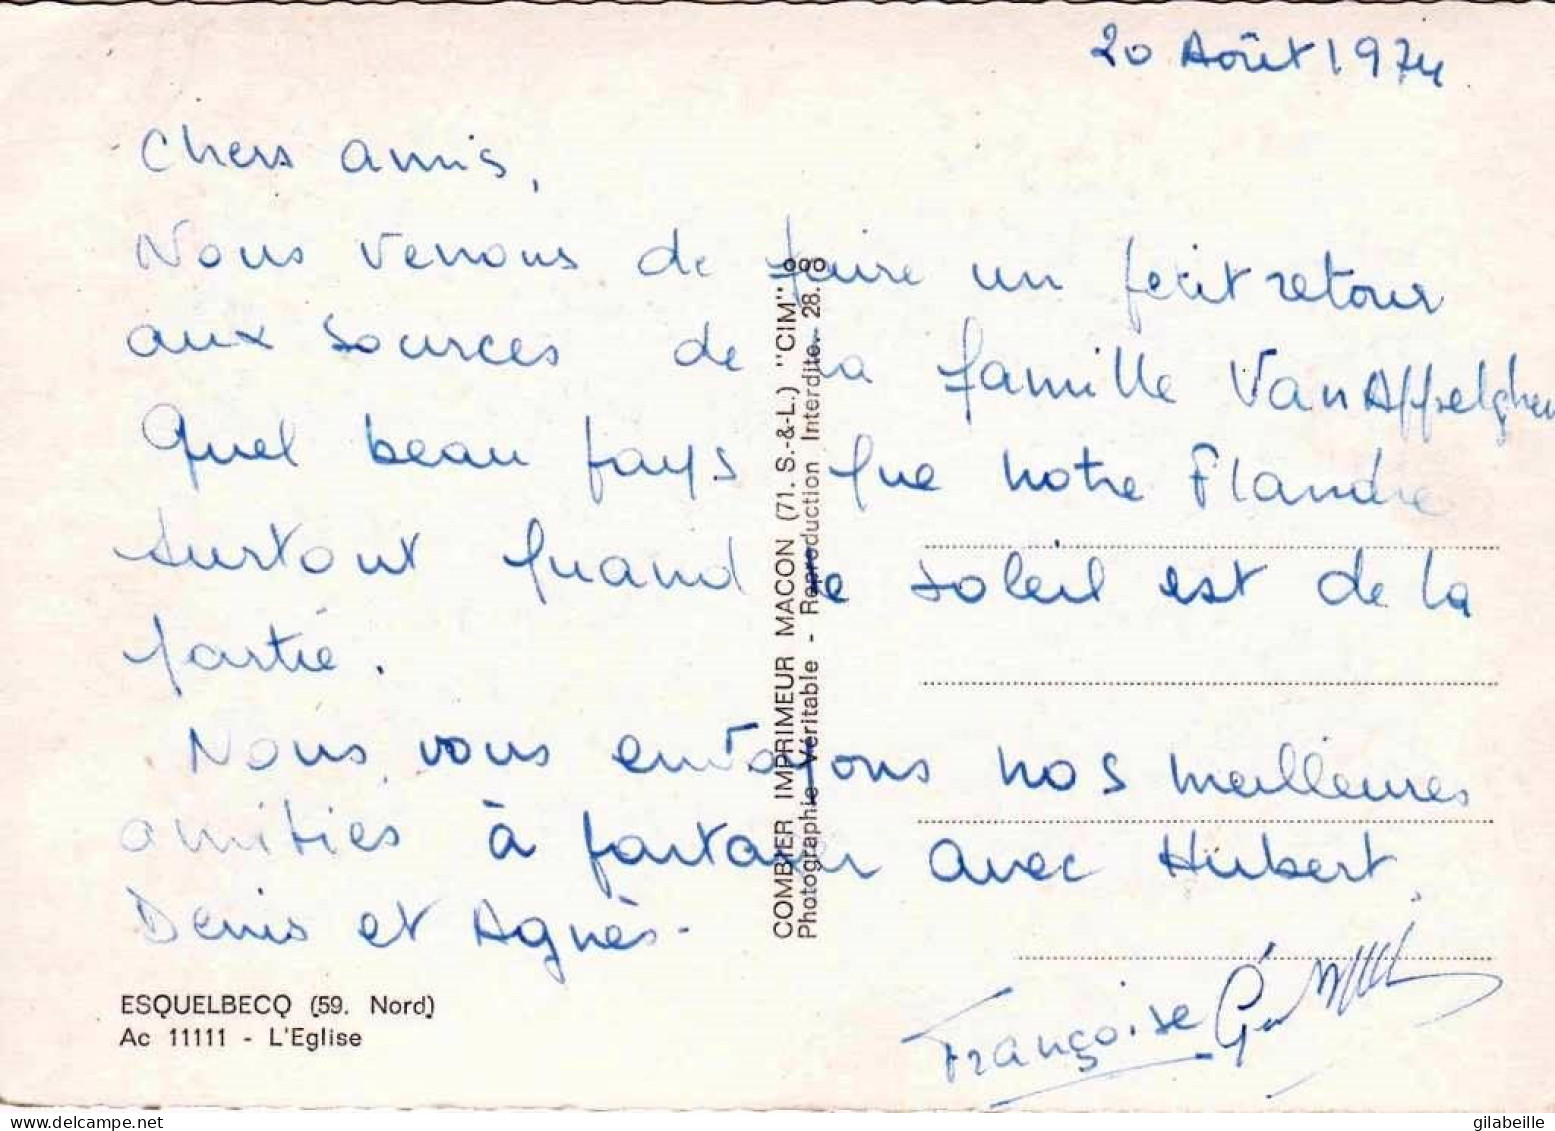 20 Août 1974
Chers amis,
Nous venons de faire un petit retour
aux sources de la famille Van Appelghem
Quel beau pays que notre Flandre
surtout quand le soleil est de la
partie.
Nous vous envoyons nos meilleures
amitiés à partager avec Hubert,
Denis et Agnès.
Françoise
ESQUELBECQ (59. Nord)
Ac 11111 - L'Eglise
COMBIER IMPRIMEUR MACON (71. S.-&-L.) "CIM"
Photographie Véritable - Reproduction Interdite. 28.
gilabeille